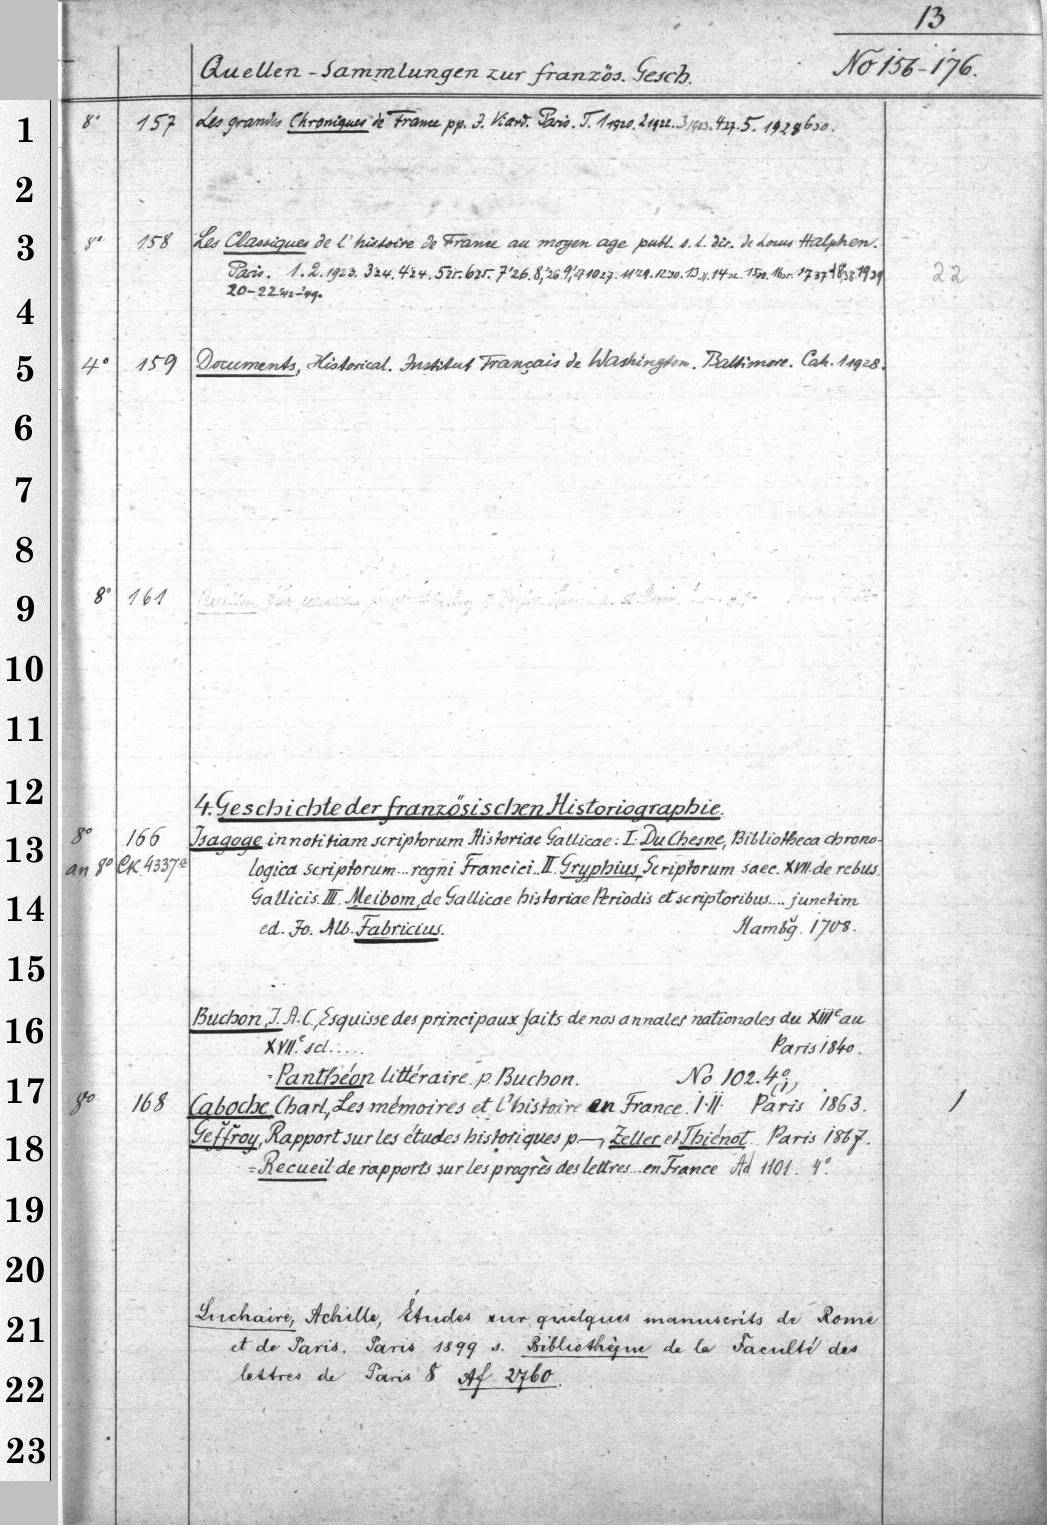 13
Quellen-Sammlungen zur französ. Gesch. No 156-176.
1
8° 157 Les grandes Chroniques de France pp. J. Viard. Paris. T. 1 1920. 2 1922. 3 1923. 4 27. 5. 1928 6 30.
2
3
8° 158 Les Classiques de l'histoire de France au moyen age publ. s. l. dir. de Louis Halphen.
Paris. 1. 2. 1923. 3 24. 4 24. 5 25. 6 25. 7 '26. 8, '26. 9, 10 27. 11 29. 12 30. 13 14 15 16 17 37 18, 38. 19 39
22
20-22 '42-'49.
4
5
4° 159 Documents, Historical. Institut Français de Washington. Baltimore. Cah. 1 1928.
6
7
8
9
8° 161
10
11
12
4. Geschichte der französischen Historiographie.
13
8° 166 Isagoge in notitiam scriptorum Historiae Gallicae: I. Du Chesne, Bibliotheca chrono-
an 8° CK 4337a logica scriptorum... regni Francici. II. Gryphius, Scriptorum saec. XVII. de rebus
14
Gallicis. III. Meibom, de Gallicae historiae Periodis et scriptoribus.... junctim
ed. Jo. Alb. Fabricius. Hambg. 1708.
15
16
Buchon, J. A. C., Esquisse des principaux faits de nos annales nationales du XIIIe au
XVIIe scl..... Paris 1840.
17
- Panthéon littéraire p. Buchon. No 102. 4° (1)
8° 168 Caboche, Charl, Les mémoires et l'histoire en France. I. II. Paris 1863. 1
18
Geffroy, Rapport sur les études historiques p. —, Zeller et Thiénot. Paris 1867.
= Recueil de rapports sur les progrès des lettres... en France Ad 1101. 4°.
19
20
21
Luchaire, Achille, Études sur quelques manuscrits de Rome
et de Paris. Paris 1899 s. Bibliothèque de la Faculté des
22
lettres de Paris 8 Af 2760.
23